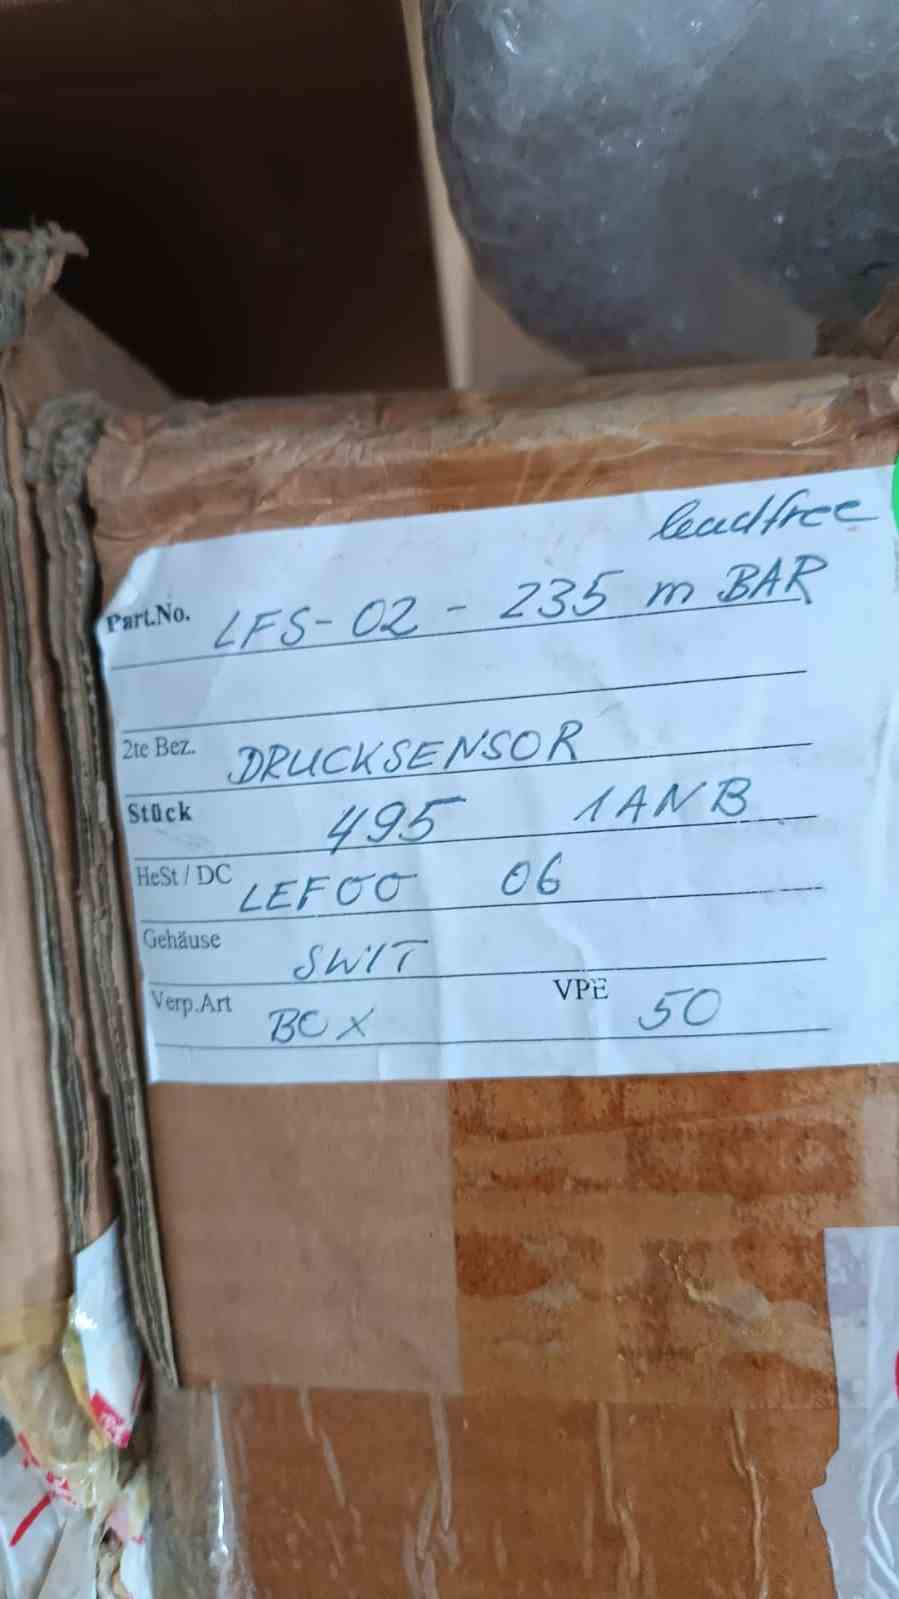 leadfree
Part.No. LFS-02 - 235 m BAR
2te Bez. DRUCKSENSOR
Stück 495 1 ANB
HeSt / DC LEFOO 06
Gehäuse SWIT
Verp.Art BOX VPE 50